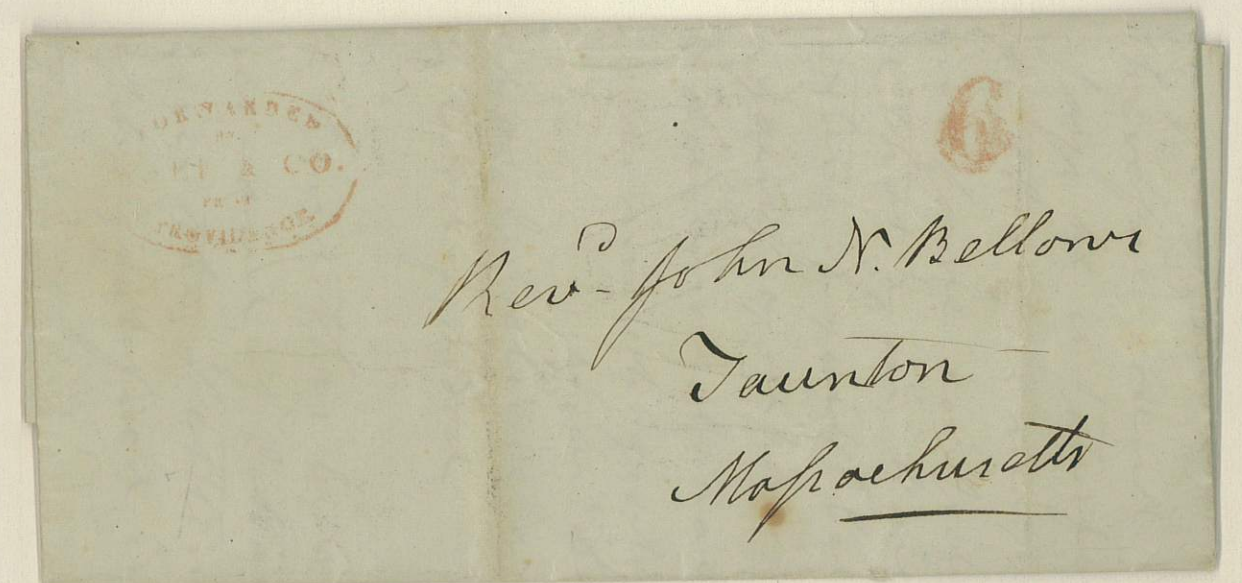 FORWARDED
BY
& CO.
FROM
PROVIDENCE
6
Revᴰ. John N. Bellows
Taunton
Massachusetts